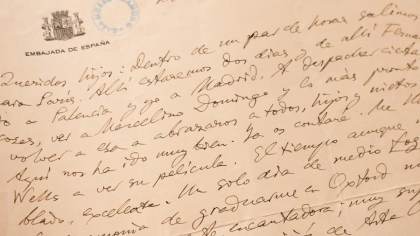 EMBAJADA DE ESPAÑA
Queridos hijos: Dentro de un par de horas salimos
para París. Allí estaremos dos días y de allí Fernando
a Palencia y yo a Madrid. A despachar ciertas
cosas, ver a Marcelino Domingo y lo más pronto
volver a esa a abrazaros a todos, hijos y nietos
Aquí nos ha ido muy bien. Ya os contaré. Me
Wells a ver su película. El tiempo aunque
blado, excelente. Un solo día de medio
de graduarme en Oxford
encantadora; muy
de Arte